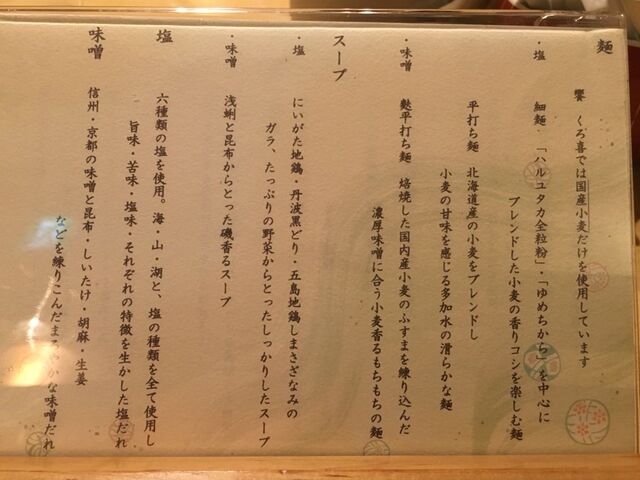 麺
饗 くろ喜では国産小麦だけを使用しています
・塩 細麺 「ハルユタカ全粒粉」・「ゆめちから」を中心に
ブレンドした小麦の香りコシを楽しむ麺
平打ち麺 北海道産の小麦をブレンドし
小麦の甘味を感じる多加水の滑らかな麺
・味噌 麩平打ち麺 焙焼した国内産小麦のふすまを練り込んだ
濃厚味噌に合う小麦香るもちもちの麺
スープ
・塩 にいがた地鶏・丹波黒どり・五島地鶏しまさざなみの
ガラ、たっぷりの野菜からとったしっかりしたスープ
・味噌 浅蜊と昆布からとった磯香るスープ
塩 六種類の塩を使用。海・山・湖と、塩の種類を全て使用し
旨味・苦味・塩味・それぞれの特徴を生かした塩だれ
味噌 信州・京都の味噌と昆布・しいたけ・胡麻・生姜
などを練りこんだまろやかな味噌だれ